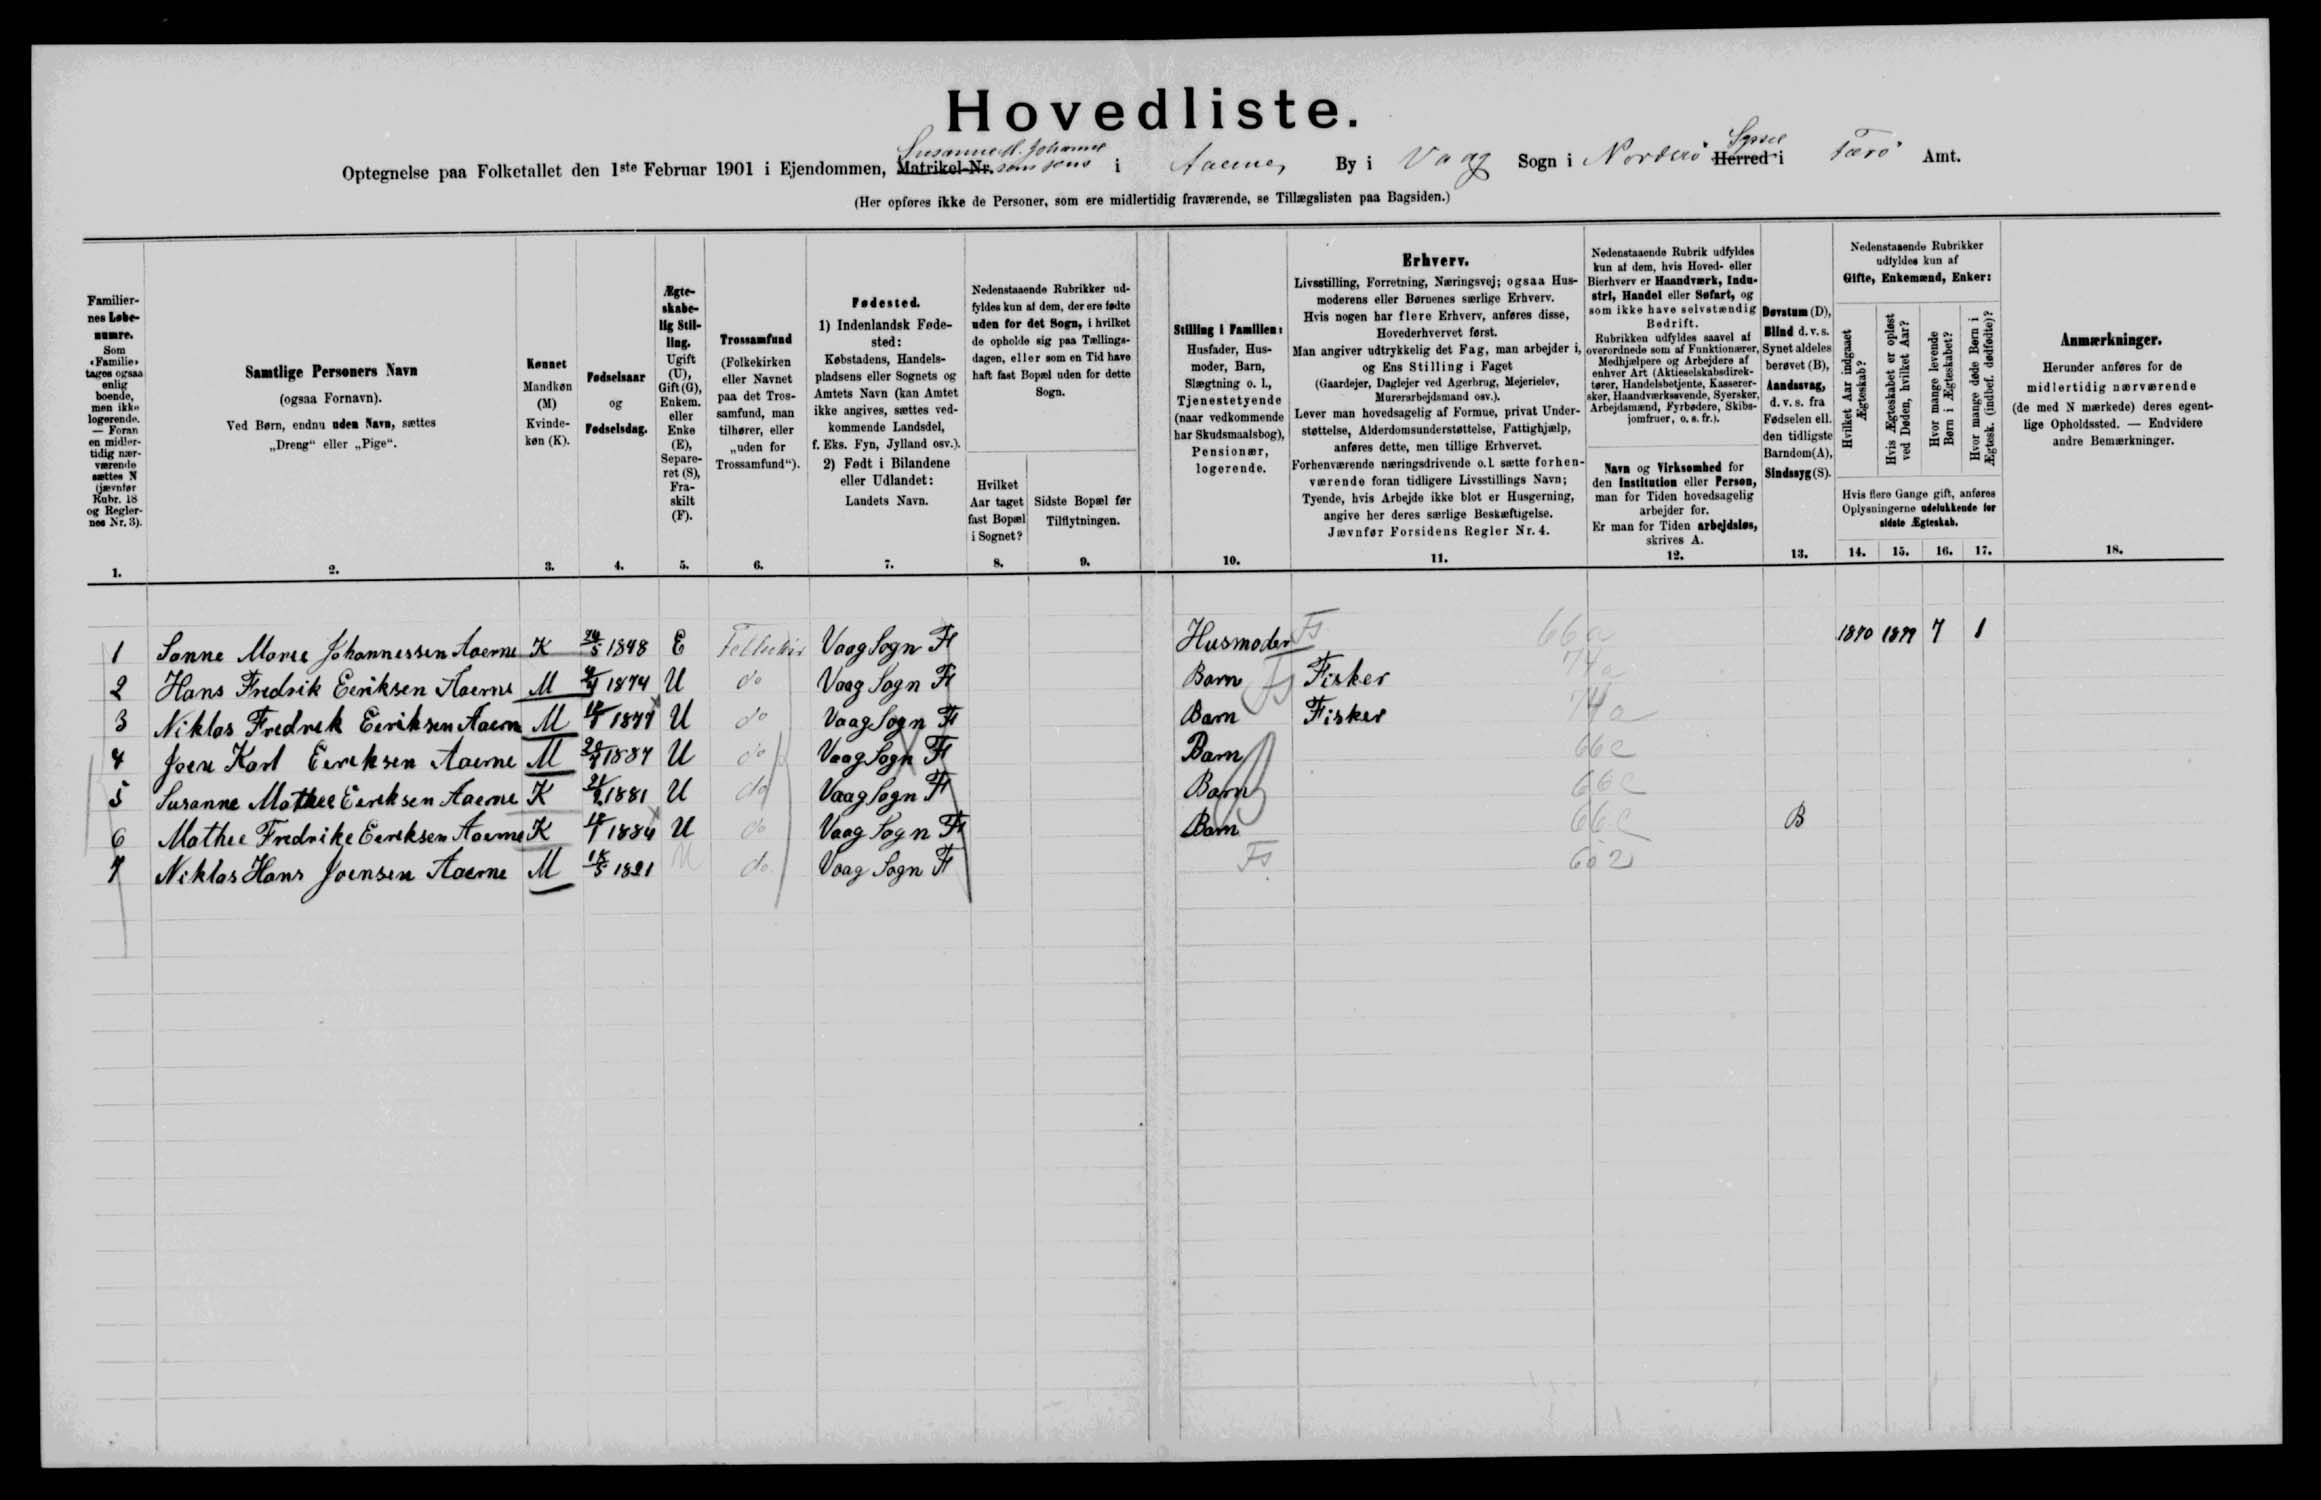 Hovedliste.
Optegnelse paa Folketallet den 1ste Februar 1901 i Ejendommen, Matrikel-Nr. Susanne M. Johannessens i Aaerne, By i Vaag Sogn i Norderö Herred Syssel i Færö Amt.
(Her opføres ikke de Personer, som ere midlertidig fraværende, se Tillægslisten paa Bagsiden.)
Familiernes Løbenumre.
Som «Familie» tages ogsaa enlig boende, men ikke logerende. — Foran en midlertidig nærværende sættes N (jævnfør Rubr. 18 og Reglernes Nr. 3).
1.
Samtlige Personers Navn
(ogsaa Fornavn).
Ved Børn, endnu uden Navn, sættes
„Dreng“ eller „Pige“.
2.
Kønnet
Mandkøn (M)
Kvindekøn (K).
3.
Fødselsaar
og
Fødselsdag.
4.
Ægteskabelig Stilling.
Ugift (U), Gift (G), Enkem. eller Enke (E), Separeret (S), Fraskilt (F).
5.
Trossamfund
(Folkekirken eller Navnet paa det Trossamfund, man tilhører, eller „uden for Trossamfund“).
6.
Fødested.
1) Indenlandsk Fødested:
Købstadens, Handelspladsens eller Sognets og Amtets Navn (kan Amtet ikke angives, sættes vedkommende Landsdel, f. Eks. Fyn, Jylland osv.).
2) Født i Bilandene eller Udlandet:
Landets Navn.
7.
Nedenstaaende Rubrikker udfyldes kun af dem, der ere fødte uden for det Sogn, i hvilket de opholde sig paa Tællingsdagen, eller som en Tid have haft fast Bopæl uden for dette Sogn.
Hvilket Aar taget fast Bopæl i Sognet?
8.
Sidste Bopæl før Tilflytningen.
9.
Stilling i Familien:
Husfader, Husmoder, Barn, Slægtning o. l., Tjenestetyende (naar vedkommende har Skudsmaalsbog), Pensionær, logerende.
10.
Erhverv.
Livsstilling, Forretning, Næringsvej; ogsaa Husmoderens eller Børnenes særlige Erhverv.
Hvis nogen har flere Erhverv, anføres disse, Hovederhvervet først.
Man angiver udtrykkelig det Fag, man arbejder i, og Ens Stilling i Faget
(Gaardejer, Daglejer ved Agerbrug, Mejerielev, Murerarbejdsmand osv.).
Lever man hovedsagelig af Formue, privat Understøttelse, Alderdomsunderstøttelse, Fattighjælp, anføres dette, men tillige Erhvervet.
Forhenværende næringsdrivende o. l. sætte forhenværende foran tidligere Livsstillings Navn;
Tyende, hvis Arbejde ikke blot er Husgerning, angive her deres særlige Beskæftigelse.
Jævnfør Forsidens Regler Nr. 4.
11.
Nedenstaaende Rubrik udfyldes kun af dem, hvis Hoved- eller Bierhverv er Haandværk, Industri, Handel eller Søfart, og som ikke have selvstændig Bedrift.
Rubrikken udfyldes saavel af overordnede som af Funktionærer, Medhjælpere og Arbejdere af enhver Art (Aktieselskabsdirektører, Handelsbetjente, Kasserersker, Haandværkssvende, Syersker, Arbejdsmænd, Fyrbødere, Skibsjomfruer, o. s. fr.).
Navn og Virksomhed for den Institution eller Person, man for Tiden hovedsagelig arbejder for.
Er man for Tiden arbejdsløs, skrives A.
12.
Døvstum (D), Blind d. v. s. Synet aldeles berøvet (B), Aandssvag, d. v. s. fra Fødselen ell. den tidligste Barndom (A), Sindssyg (S).
13.
Nedenstaaende Rubrikker udfyldes kun af
Gifte, Enkemænd, Enker:
Hvilket Aar indgaaet Ægteskab?
Hvis Ægteskabet er opløst ved Døden, hvilket Aar?
Hvor mange levende Børn i Ægteskabet?
Hvor mange døde Børn i Ægtesk. (indbef. dødfødte)?
Hvis flere Gange gift, anføres Oplysningerne udelukkende for sidste Ægteskab.
14. 15. 16. 17.
Anmærkninger.
Herunder anføres for de midlertidig nærværende (de med N mærkede) deres egentlige Opholdssted. — Endvidere andre Bemærkninger.
18.
1 Sanne Marie Johannessen Aaerne K 5 1848 E Folkekir Vaag Sogn Fr Husmoder Fs 66a 1870 7 1
2 Hans Fredrik Eeriksen Aaerne M 1874 U do Vaag Sogn Fr Barn Fs Fisker 74a
3 Niklas Fredrek Eeriksen Aaern M 1877 U do Vaag Sogn Fr Barn Fisker 74a
4 Joen Karl Eereksen Aaerne M 1887 U do Vaag Sogn Fr Barn 66c
5 Susanne Mathee Eereksen Aaerne K 1881 U do Vaag Sogn Fr Barn 66c
6 Mathee Fredrike Eereksen Aaerne K 1884 U do Vaag Sogn Fr Barn 66c B
7 Niklas Hans Joensen Aaerne M 1821 U do Vaag Sogn Fr Fs